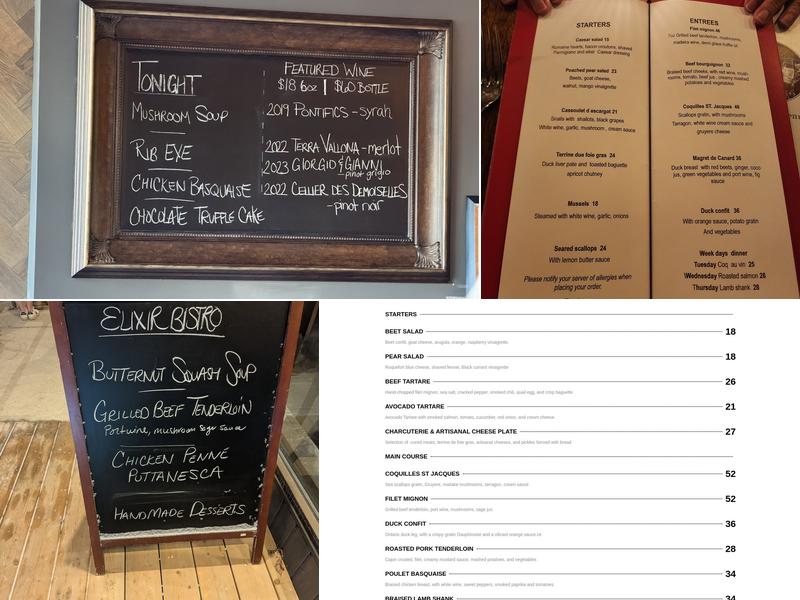 TONIGHT
MUSHROOM SOUP
RIB EYE
CHICKEN BASQUAISE
CHOCOLATE TRUFFLE CAKE
FEATURED WINE
$18 6oz | $60 BOTTLE
2019 PONTIFICS - syrah
2022 TERRA VALLONA - merlot
2023 GIORGIO & GIANNI
- pinot grigio
2022 CELLIER DES DEMOISELLES
- pinot noir
STARTERS
Caesar salad 15
Romaine hearts, bacon croutons, shaved
Parmigiano and elixir Caesar dressing
Poached pear salad 23
Beets, goat cheese,
walnut, mango vinaigrette
Cassoulet d escargot 21
Snails with shallots, black grapes
White wine, garlic, mushroom, cream sauce
Terrine due foie gras 24
Duck liver pate and toasted baguette
apricot chutney
Mussels 18
Steamed with white wine, garlic, onions
Seared scallops 24
With lemon butter sauce
Please notify your server of allergies when
placing your order.
ENTREES
Filet mignon 46
7oz Grilled beef tenderloin, mushrooms,
madeira wine, demi glaze truffle oil
Beef bourguignon 33
Braised beef cheeks, with red wine, mush-
rooms, tomato, beef jus, creamy mashed
potatoes and vegetables
Coquilles ST. Jacques 46
Scallops gratin, with mushrooms
Tarragon, white wine cream sauce and
gruyere cheese
Magret de Canard 36
Duck breast with red beets, ginger, coco
jus, green vegetables and port wine, fig
sauce
Duck confit 36
With orange sauce, potato gratin
And vegetables
Week days dinner
Tuesday Coq au vin 25
Wednesday Roasted salmon 26
Thursday Lamb shank 28
ELIXIR BISTRO
BUTTERNUT SQUASH SOUP
GRILLED BEEF TENDERLOIN
Port wine, mushroom sage sauce
CHICKEN PENNE
PUTTANESCA
HANDMADE DESSERTS
STARTERS
BEET SALAD 18
Beet confit, goat cheese, arugula, orange, raspberry vinaigrette
PEAR SALAD 18
Roquefort blue cheese, shaved fennel, Black currant vinaigrette
BEEF TARTARE 26
Hand-chopped filet mignon, sea salt, cracked pepper, smoked chili, quail egg, and crisp baguette
AVOCADO TARTARE 21
Avocado Tartare with smoked salmon, tomato, cucumber, red onion, and cream cheese
CHARCUTERIE & ARTISANAL CHEESE PLATE 27
Selection of cured meats, terrine de foie gras, artisanal cheeses, and pickles Served with bread
MAIN COURSE
COQUILLES ST JACQUES 52
Sea scallops gratin, Gruyere, maitake mushrooms, tarragon, cream sauce
FILET MIGNON 52
Grilled beef tenderloin, port wine, mushrooms, sage jus
DUCK CONFIT 36
Ontario duck leg, with a crispy gratin Dauphinoise and a vibrant orange sauce
ROASTED PORK TENDERLOIN 28
Cajun crusted, filet, creamy mustard sauce, mashed potatoes, and vegetables
POULET BASQUAISE 34
Braised chicken breast, with white wine, sweet peppers, smoked paprika and tomatoes
BRAISED LAMB SHANK 34